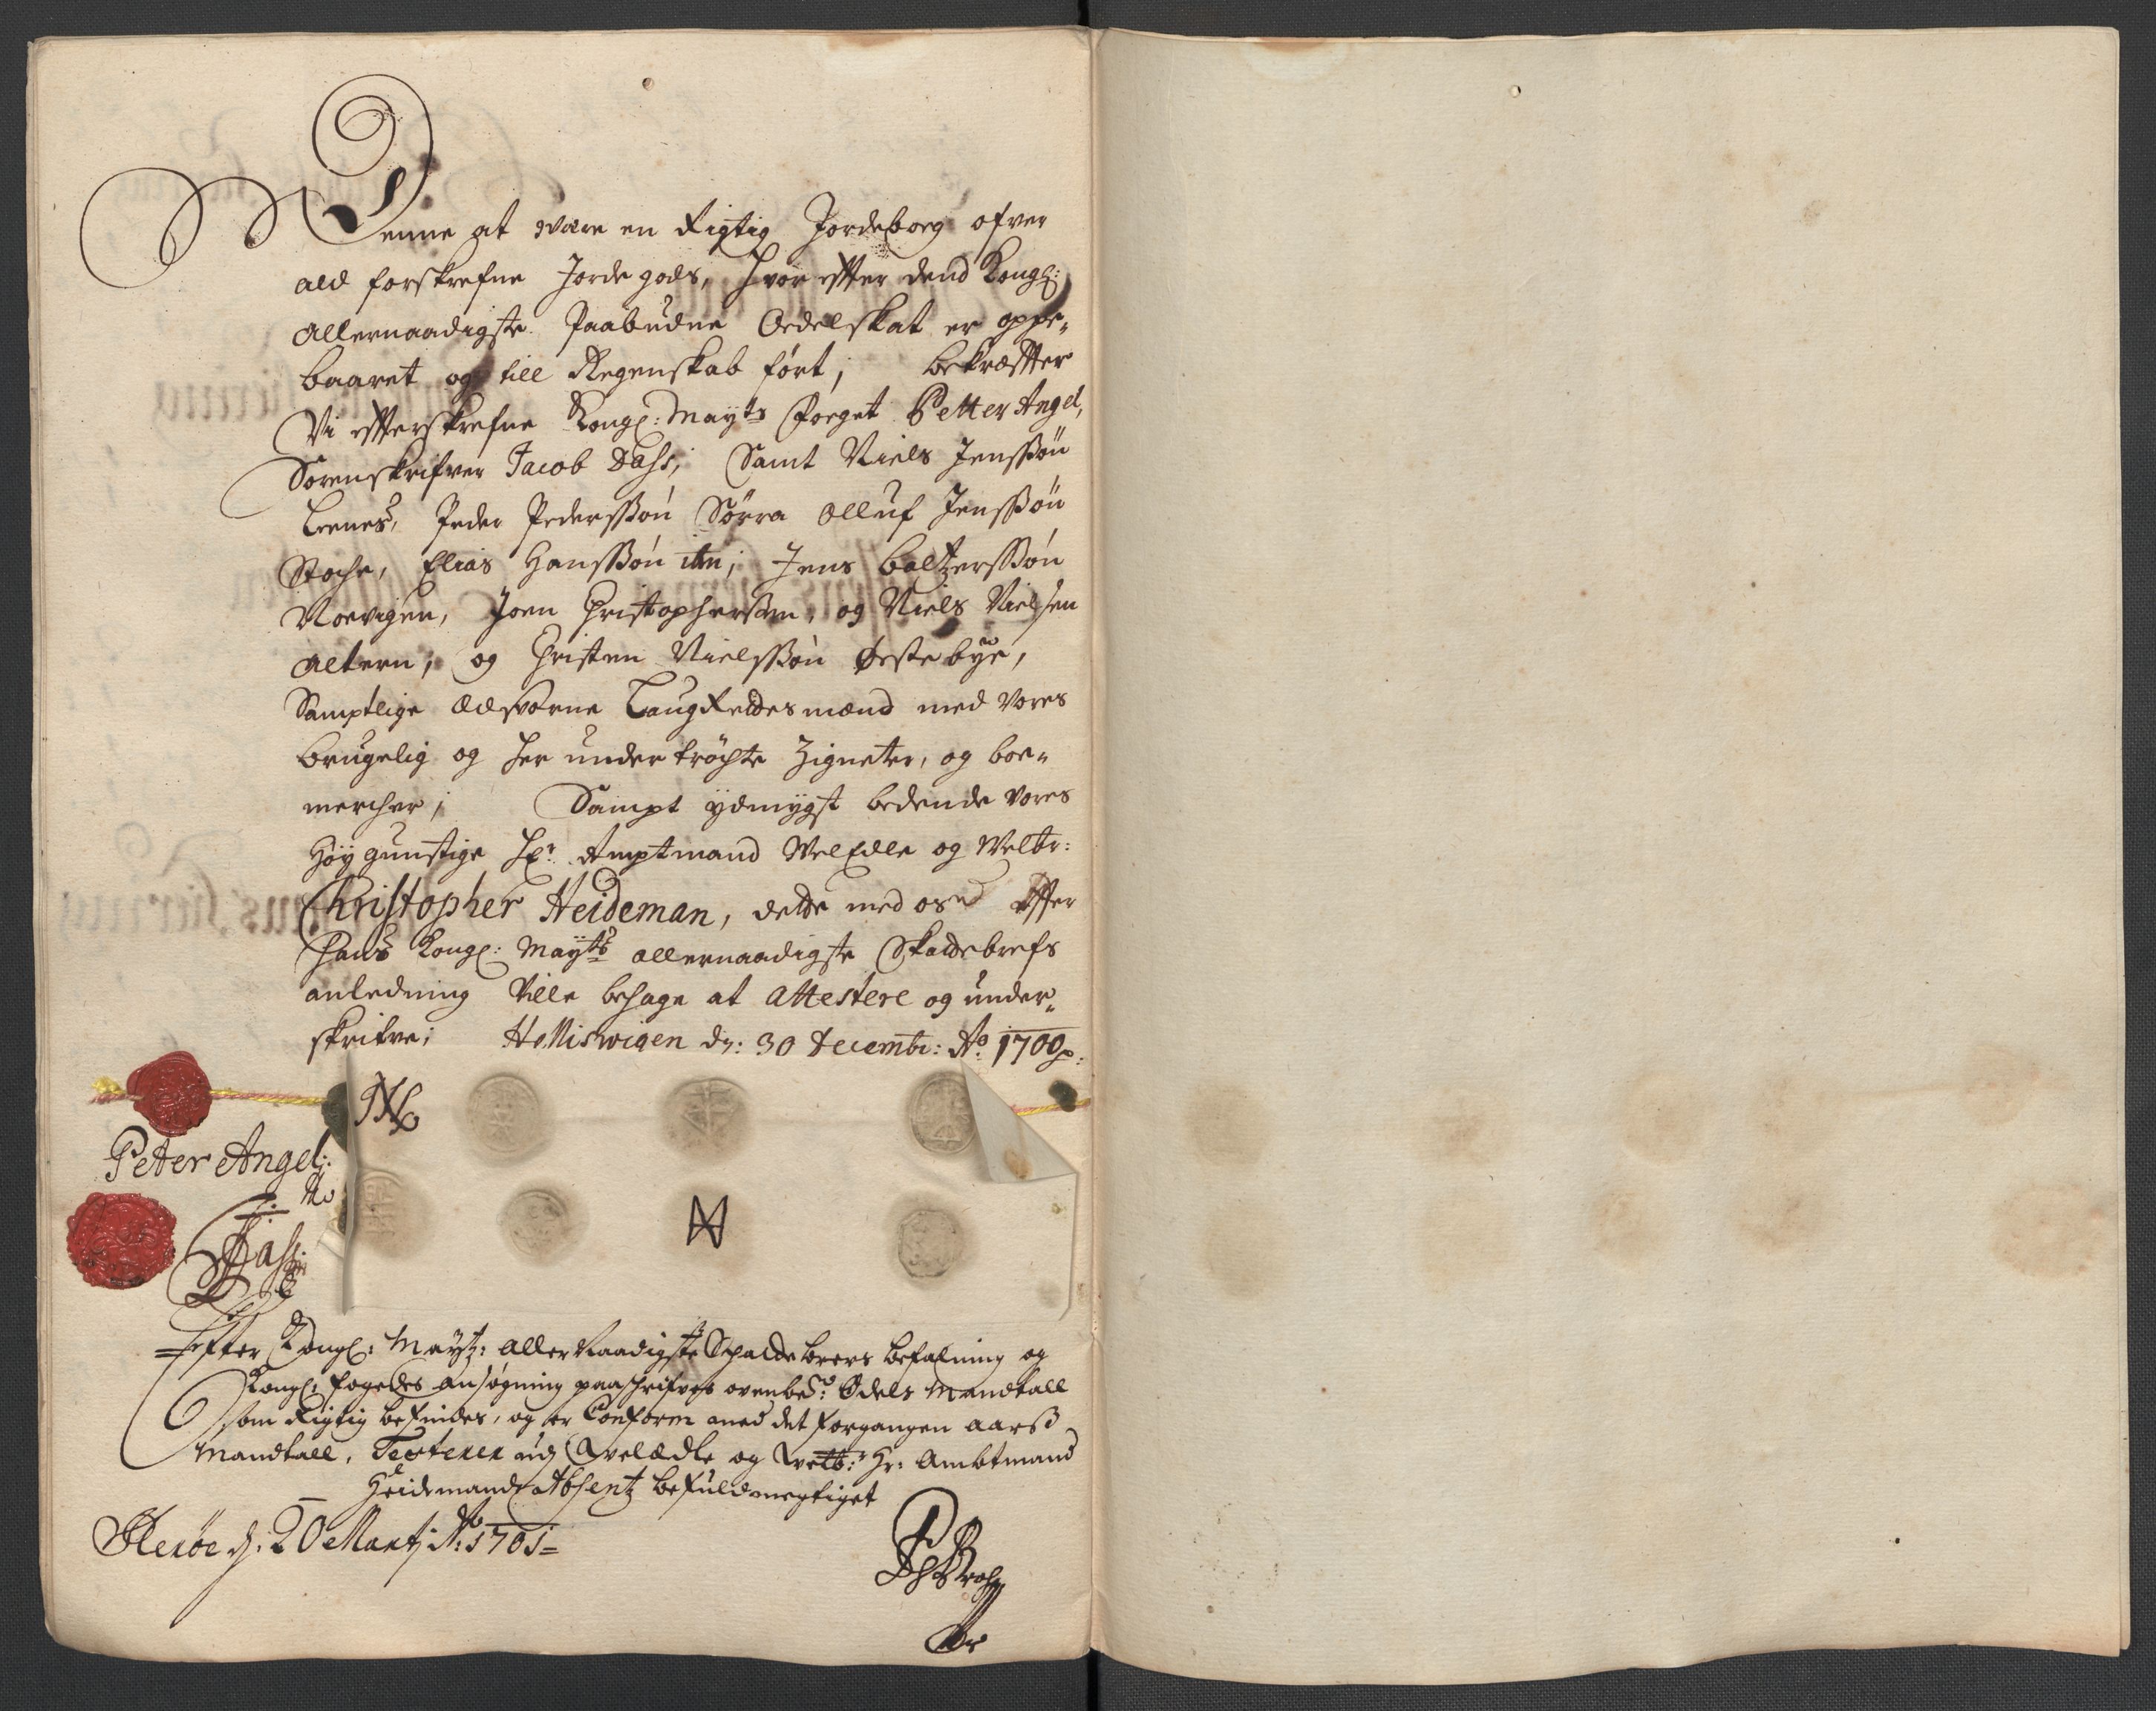 Denne at være en Rigtig Jordeboeg ofver
ald forskrefne Jordegods, Hvor effter dend Kongl:
Allernaadigste Paabudne Oedelskat er oppe„
baaret og till Regenskab ført; bekræffter
Vi effterskrefne Kongl: Mayts Foeget Petter Angel,
Sorenskrifver Jacob Dass, Samt Niels Jenssøn
Leenes, Peder Pederssøn Sørra Olluf Jenssøn
Stoche, Elias Hanssøn itm; Jens Baltzerssøn
Noevigen, Joen Christophersøn, og Niels Nielsen
Altern; og Christen Nielssøn Østebye,
SamptligeÆdsvorne Laugrettesmænd med vores
brugelig og her undertrøchte Zigneter, og boe„
mercher; Sampt ydmygst bedende vores
Høygunstige Hr: Amptmand WelEdle og Welbr:
Christopher Heideman, dette med os effter
Hans Kongl: Mayts allernaadigste Skattebrefs
anledning Ville behage at Attestere og under„
skrifve; Holliswigen dn: 30 Decembr: Ao 1700
Peter Angel:
J: Dass
Effter Kongl: Maytz: AllerNaadigste Schattebrevs befalning og
Kongl: fogedes ansøgning paaschrifves ovenbete: Odels Mandtall
som Rigtig befindes, og er Conform med det forgangen aarss
Mandtall, Testerer udj Welædle og Welb: Hr: Ambtmand
Heidemands Absentz befuldmegtiget
d: 20 Martj Ao 1701